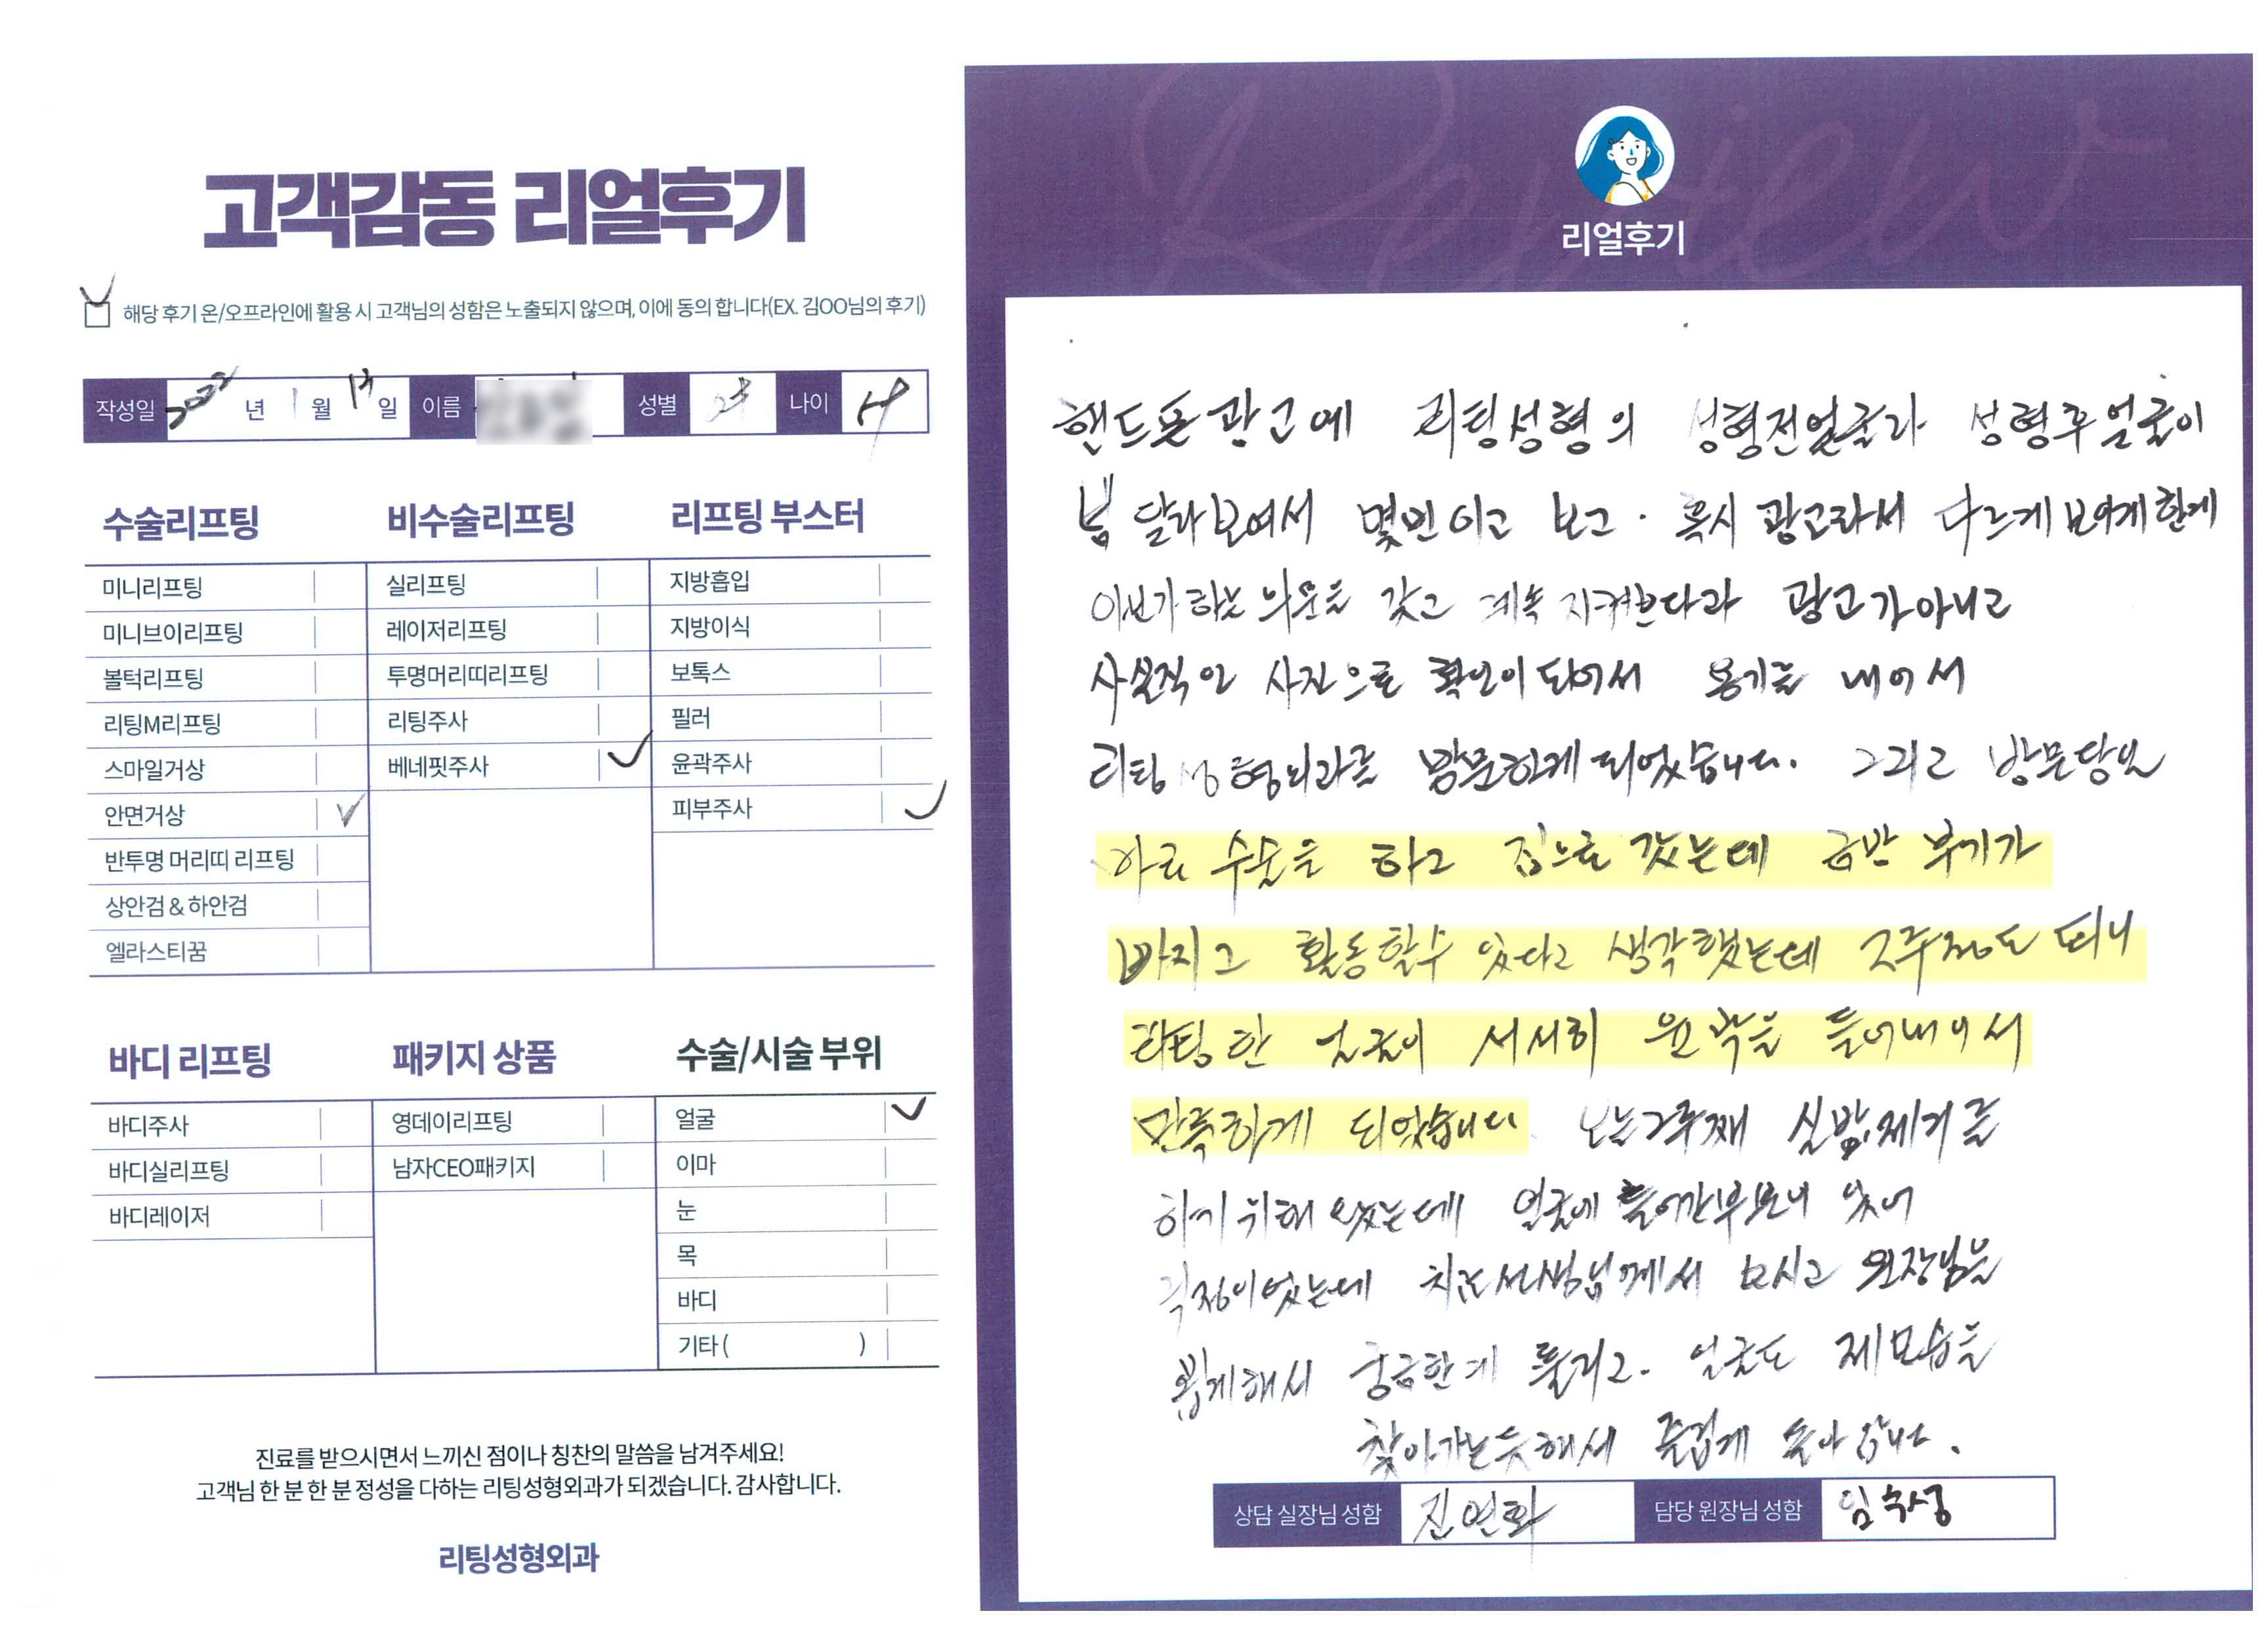 고객감동 리얼후기
해당 후기 온/오프라인에 활용 시 고객님의 성함은 노출되지 않으며, 이에 동의 합니다(EX. 김OO님의 후기)
작성일 2022 년 1 월 13 일 이름 성별 나이
수술리프팅
미니리프팅
미니브이리프팅
볼턱리프팅
리팅M리프팅
스마일거상
안면거상
반투명 머리띠 리프팅
상안검 & 하안검
엘라스티꿈
비수술리프팅
실리프팅
레이저리프팅
투명머리띠리프팅
리팅주사
베네핏주사
리프팅 부스터
지방흡입
지방이식
보톡스
필러
윤곽주사
피부주사
바디 리프팅
바디주사
바디실리프팅
바디레이저
패키지 상품
영데이리프팅
남자CEO패키지
수술/시술 부위
얼굴
이마
눈
목
바디
기타 ( )
진료를 받으시면서 느끼신 점이나 칭찬의 말씀을 남겨주세요!
고객님 한 분 한 분 정성을 다하는 리팅성형외과가 되겠습니다. 감사합니다.
리팅성형외과
Review
리얼후기
핸드폰 광고에 리팅성형의 성형전얼굴과 성형후얼굴이
넘 달라보여서 몇번이고 보고. 혹시 광고라서 다르게 보이게한게
하는 의문을 갖고 계속 지켜본다과 광고가아니고
사실적인 사진으로 확인이 되어서 용기를 내어서
리팅성형외과를 방문하게 되었습니다. 그리고 방문당일
수술을 하고 집으로 갔는데 금방 부기가
빠지고 활동할수 있다고 생각했는데 2주정도 되니
리팅한 얼굴이 서서히 윤곽을 들어내어서
만족하게 되었습니다 오는2주째 실밥제거를
하기위해 왔는데 얼굴에 들어간부분이 있어
걱정이었는데 치료선생님께서 보시고 원장님을
뵙게해서 궁금한게 풀리고. 얼굴도 제모습을
찾아가는듯해서 즐겁게 돌아갑니다.
상담 실장님 성함 진연화 담당 원장님 성함